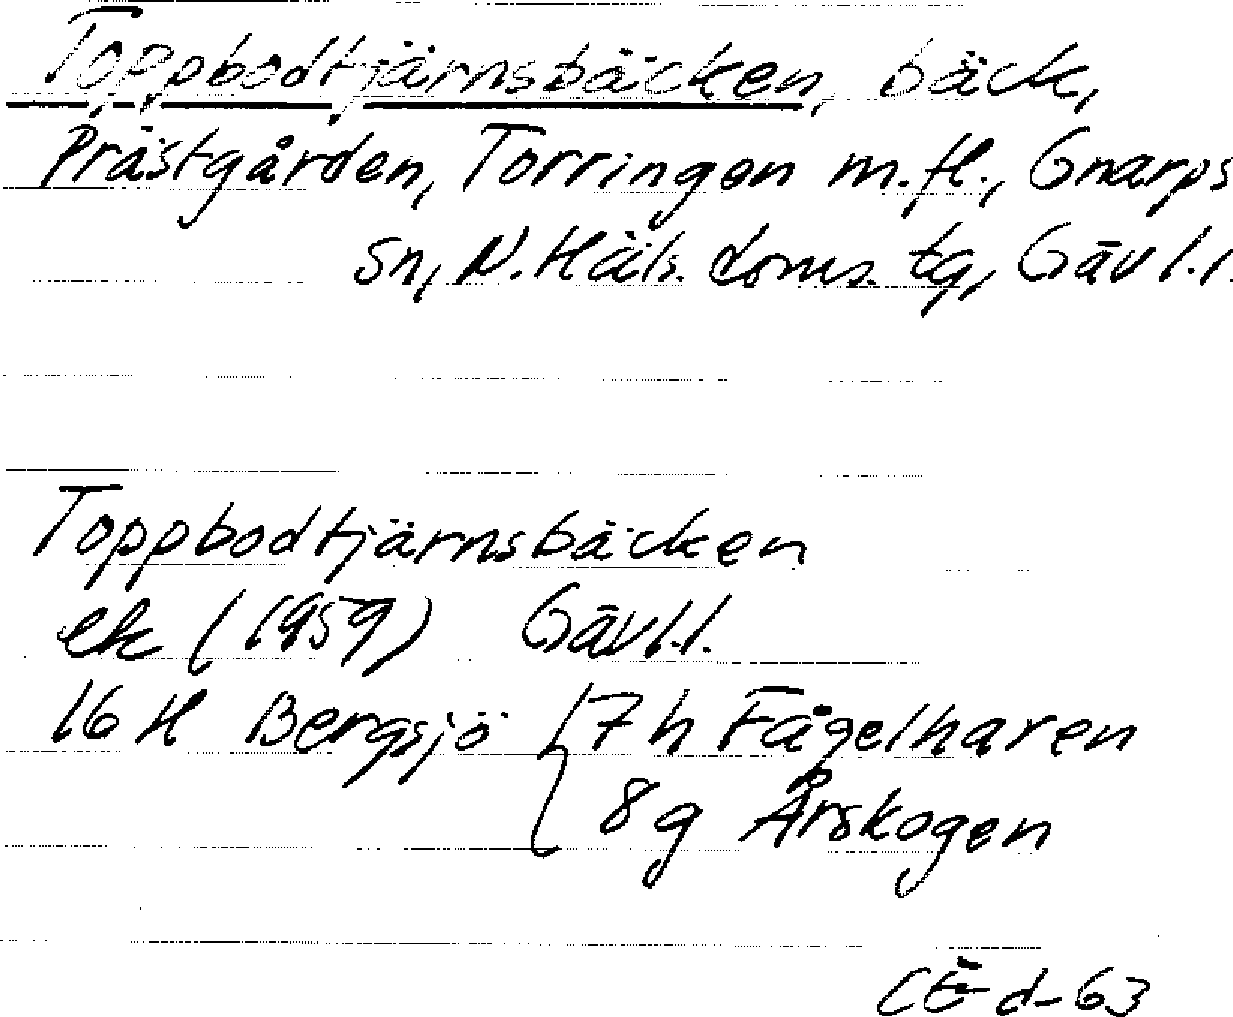 Toppbodtjärnsbäcken, bäck,
Prästgården, Torringen m.fl., Gnarps
sn, N. Häls. doms. tg, Gävl.l.
Toppbodtjärnsbäcken
ek (1959) Gävl.l.
16 H Bergsjö { 7 h Fågelharen
8 g Årskogen
CE d-63